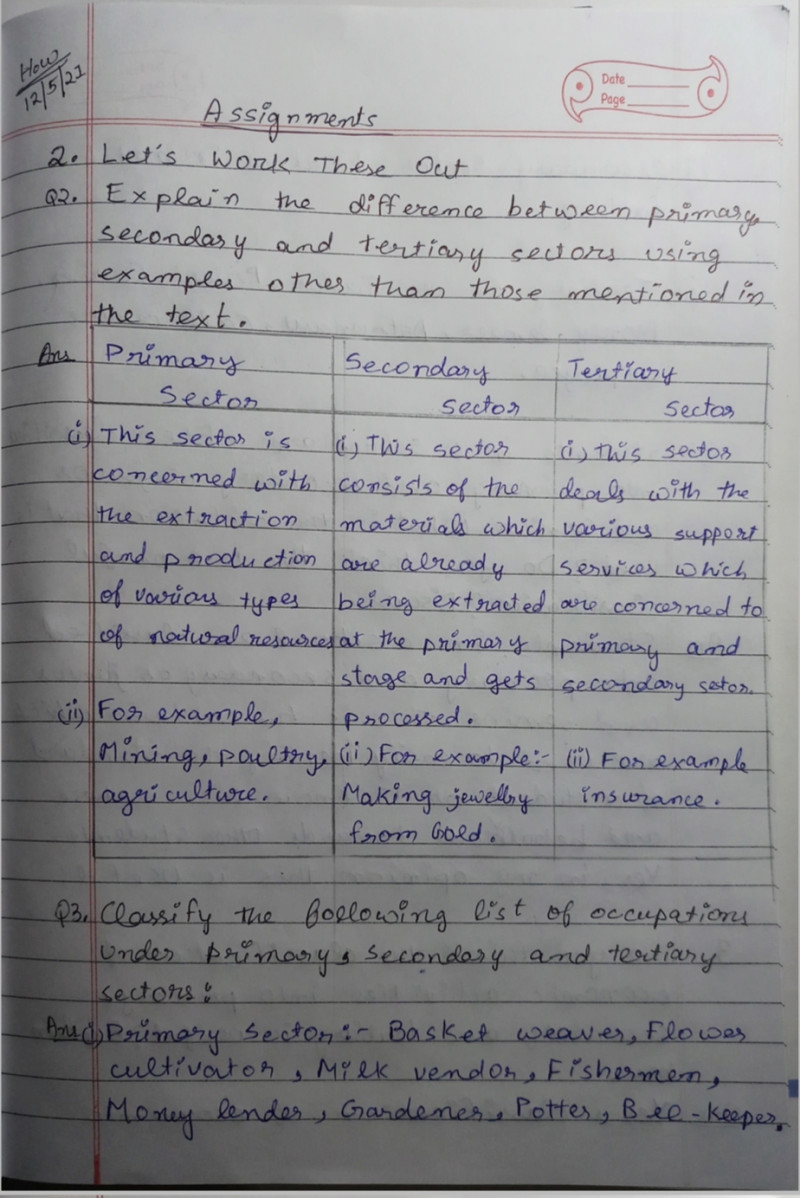 How
12/5/21
Date
Page
Assignments
2. Let's Work These Out
Q2. Explain the difference between primary,
secondary and tertiary sectors using
examples other than those mentioned in
the text.
Ans
Primary
Sector
(i) This sector is
concerned with
the extraction
and production
of various types
of natural resources
(ii) For example,
Mining, poultry,
agriculture.
Secondary
Sector
(i) This sector
consis's of the
materials which
are already
being extracted
at the primary
stage and gets
processed.
(ii) For example:-
Making jewellry
from Gold.
Tertiary
Sector
(i) this sector
deals with the
various support
services which
are concerned to
primary and
secondary setor.
(ii) For example
insurance.
Q3. Classify the following list of occupations
under primary, secondary and tertiary
sectors:
Ans (i) Primary Sector:- Basket weaver, Flower
cultivator, Milk vendor, Fishermen,
Money lender, Gardener, Potter, Bee-keeper.